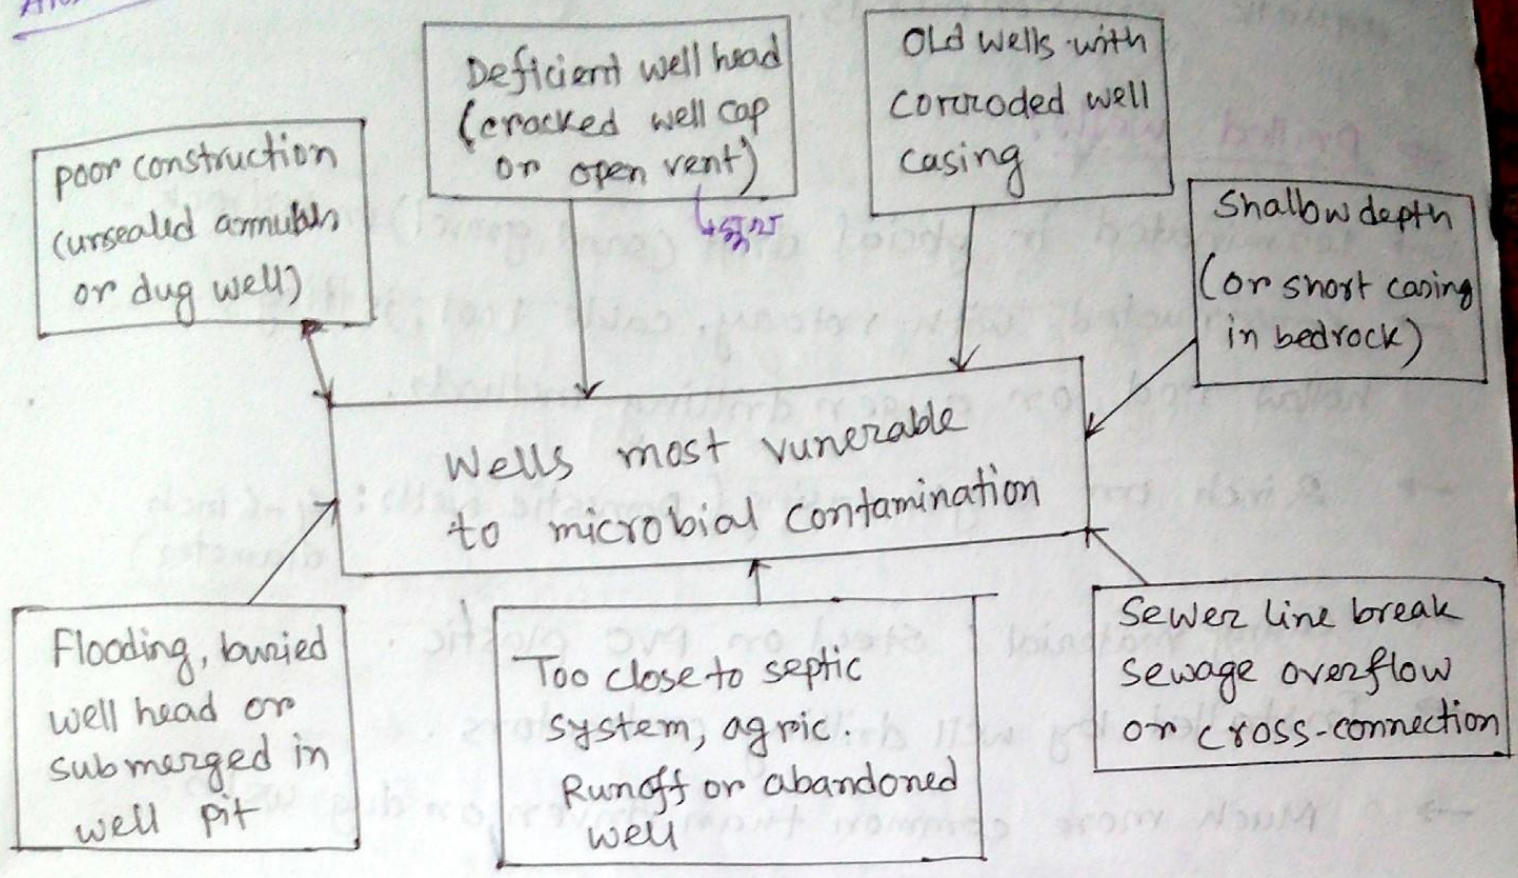 Poor construction
(unsealed annulus
or dug well)
Deficient well head
(cracked well cap
or open vent)
Old wells with
corroded well
casing
Shallow depth
(or short casing
in bedrock)
Wells most vunerable
to microbial contamination
Flooding, buried
well head or
submerged in
well pit
Too close to septic
system, agric.
Runoff or abandoned
well
Sewer line break
sewage overflow
or cross-connection